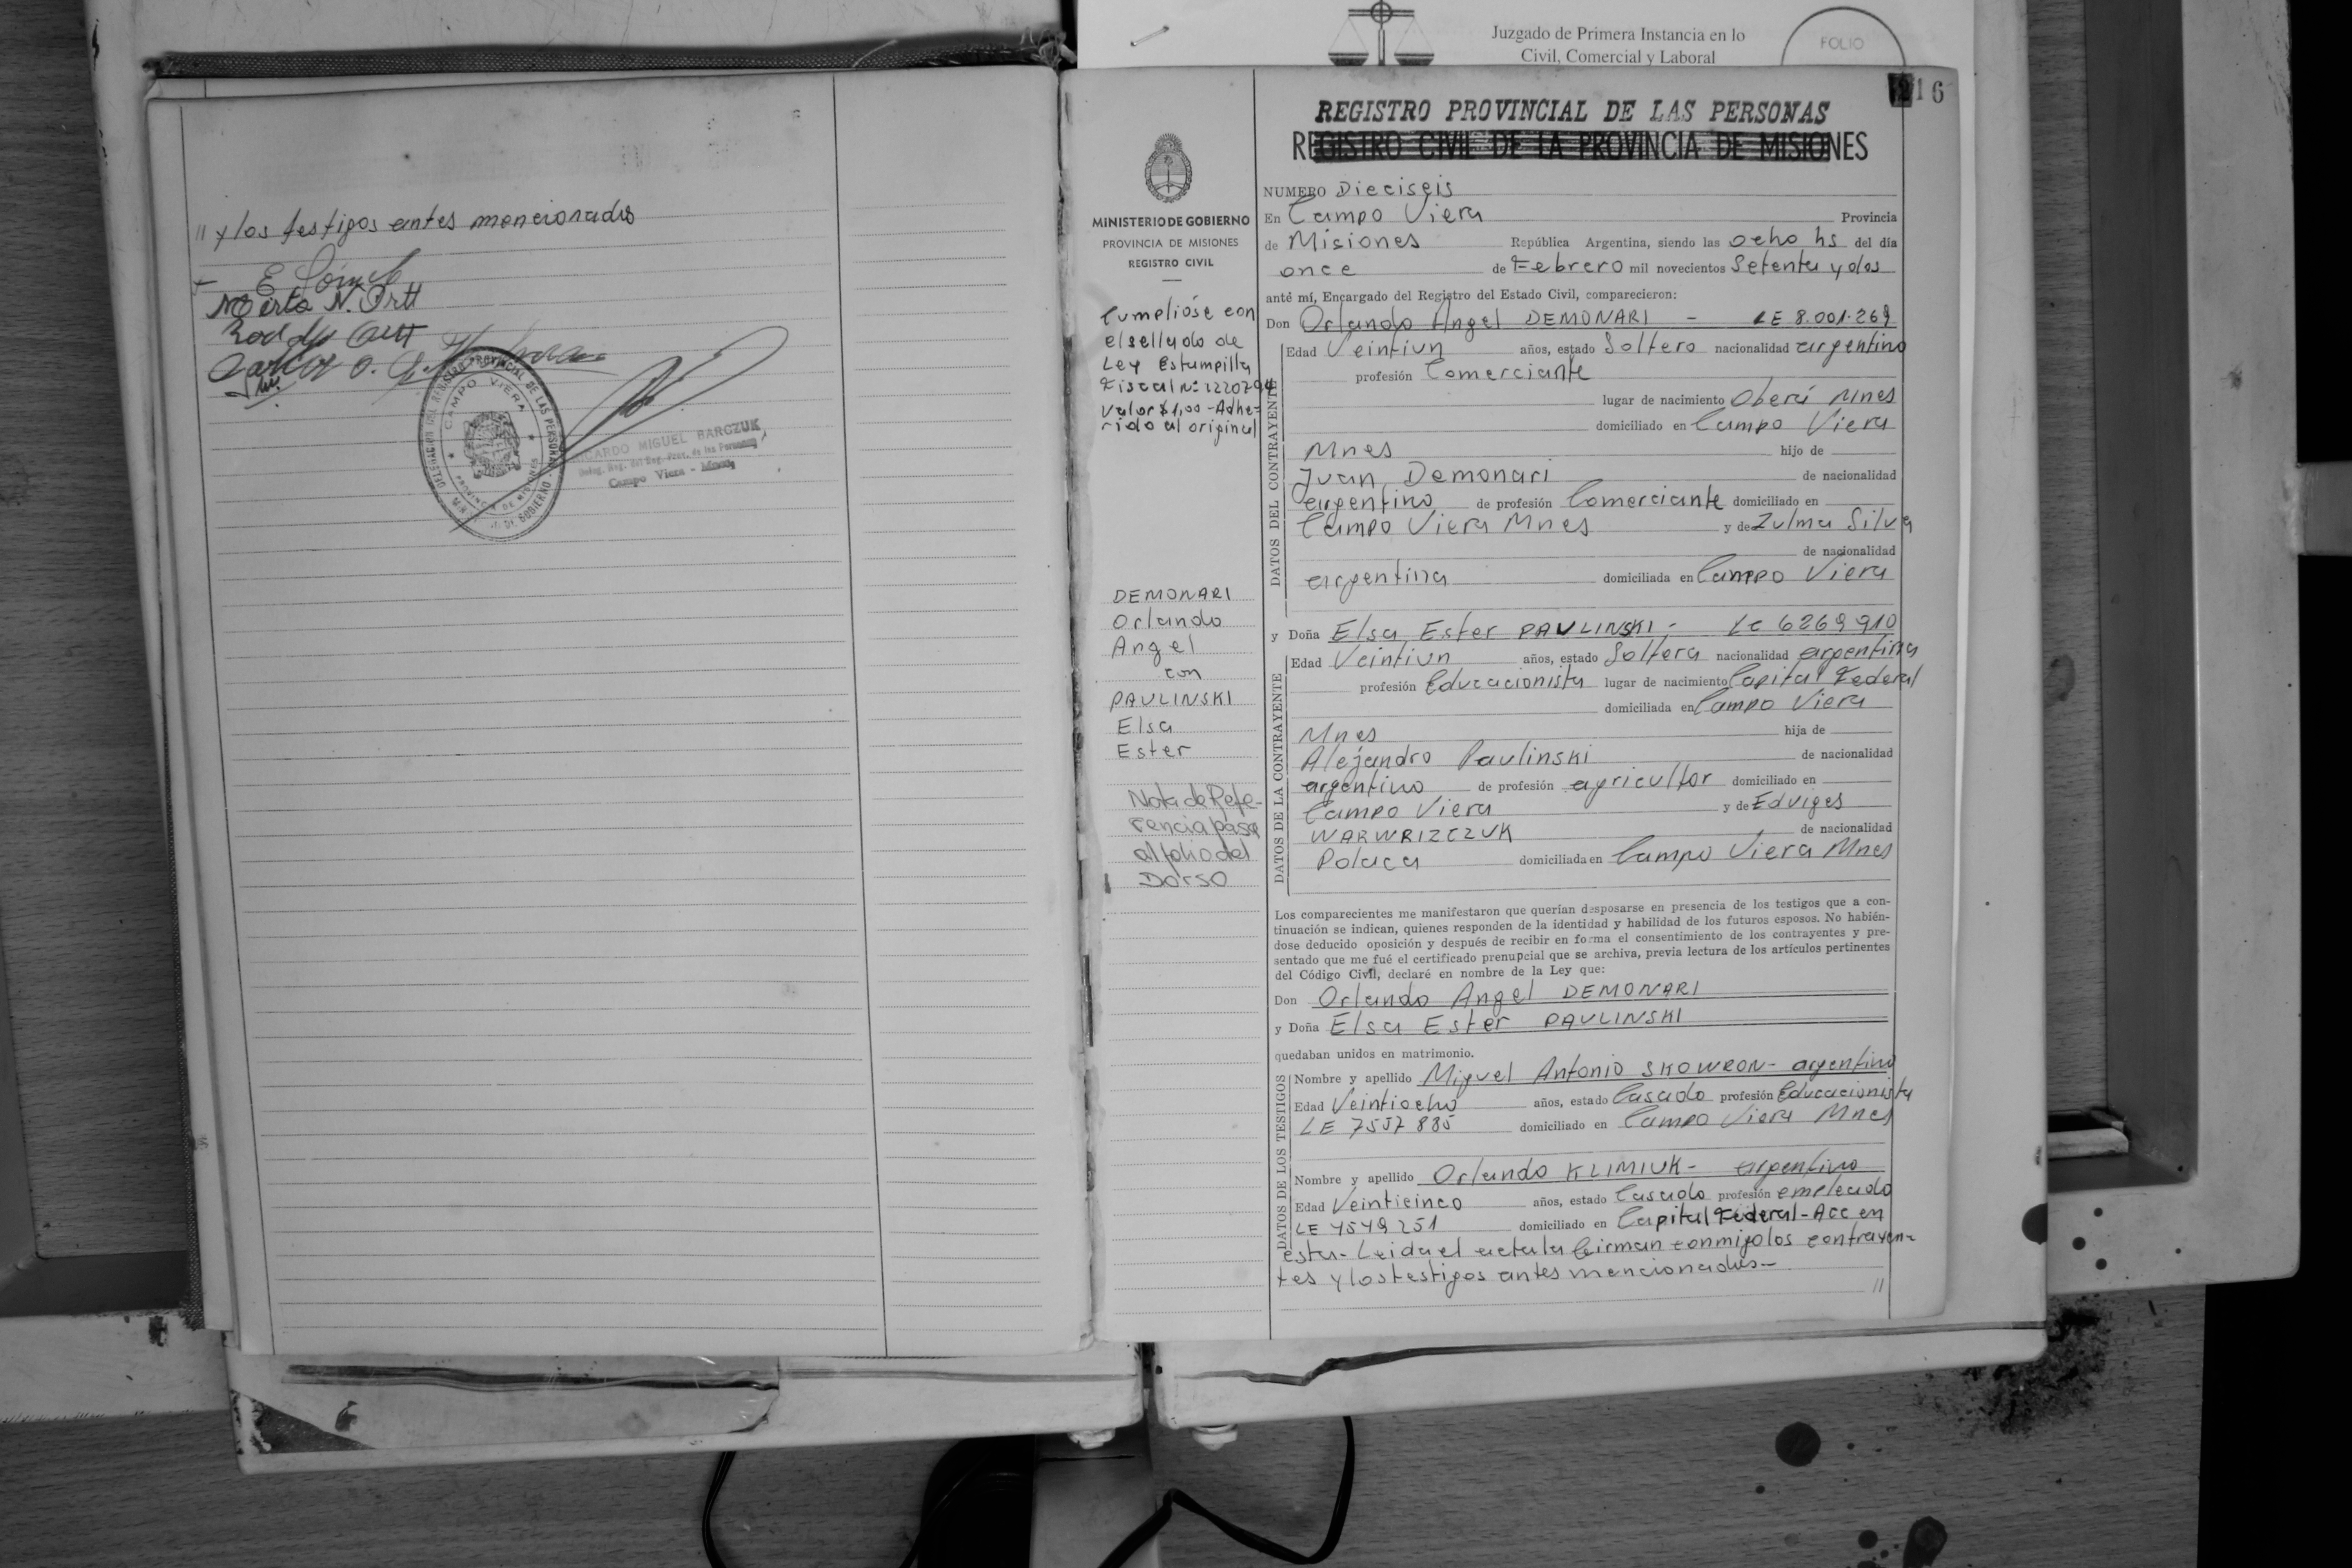 " y los testigos antes mencionados
E Gómez
Mirta N. Ortt
DELEGACION DEL REGISTRO PROVINCIAL DE LAS PERSONAS
CAMPO VIERA
PROVINCIA DE MISIONES
DE GOBIERNO
RICARDO MIGUEL BARCZUK
Deleg. Reg. del Reg. Prov. de las Personas
Campo Viera - Mnes
Juzgado de Primera Instancia en lo
Civil, Comercial y Laboral
FOLIO
216
MINISTERIO DE GOBIERNO
PROVINCIA DE MISIONES
REGISTRO CIVIL
Cumplióse con
el sellado de
Ley Estampilla
Fiscal Nº
valor $1,00 - Adhe-
rido al original
DEMONARI
Orlando
Angel
con
PAULINSKI
Elsa
Ester
Nota de Refe-
rencia pasa
al folio del
Dorso
REGISTRO PROVINCIAL DE LAS PERSONAS
REGISTRO CIVIL DE LA PROVINCIA DE MISIONES
NUMERO Dieciseis
En Campo Viera Provincia
de Misiones República Argentina, siendo las ocho hs del día
once de Febrero mil novecientos Setenta y dos
anté mí, Encargado del Registro del Estado Civil, comparecieron:
Don Orlando Angel DEMONARI - LE 8.001.269
DATOS DEL CONTRAYENTE
Edad Veintiun años, estado Soltero nacionalidad argentino
profesión Comerciante
lugar de nacimiento Oberá Mnes
domiciliado en Campo Viera
Mnes hijo de
Juan Demonari de nacionalidad
argentino de profesión Comerciante domiciliado en
Campo Viera Mnes y de Zulma Silva
de nacionalidad
argentina domiciliada en Campo Viera
y Doña Elsa Ester PAULINSKI - LC 6269910
DATOS DE LA CONTRAYENTE
Edad Veintiun años, estado Soltera nacionalidad argentina
profesión Educacionista lugar de nacimiento Capital Federal
domiciliada en Campo Viera
Mnes hija de
Alejandro Paulinski de nacionalidad
argentino de profesión agricultor domiciliado en
Campo Viera y de Edviges
WARWRIZCZUK de nacionalidad
Polaca domiciliada en Campo Viera Mnes
Los comparecientes me manifestaron que querían desposarse en presencia de los testigos que a con-
tinuación se indican, quienes responden de la identidad y habilidad de los futuros esposos. No habién-
dose deducido oposición y después de recibir en forma el consentimiento de los contrayentes y pre-
sentado que me fué el certificado prenupcial que se archiva, previa lectura de los artículos pertinentes
del Código Civil, declaré en nombre de la Ley que:
Don Orlando Angel DEMONARI
y Doña Elsa Ester PAULINSKI
quedaban unidos en matrimonio.
DATOS DE LOS TESTIGOS
Nombre y apellido Miguel Antonio SKOWRON - argentino
Edad Veintiocho años, estado Casado profesión Educacionista
LE 7557885 domiciliado en Campo Viera Mnes
Nombre y apellido Orlando KLIMIUK - argentino
Edad Veinticinco años, estado Casado profesión empleado
LE 4549251 domiciliado en Capital Federal - Acc en
esta - Leida el acta la firman conmigo los contrayen-
tes y los testigos antes mencionados -
"